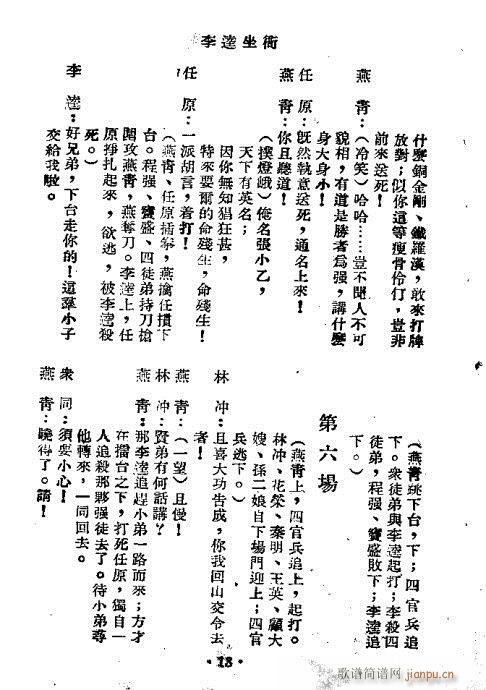 李逵坐衙
什麽銅金剛、鐵羅漢，敢來打牌
放對；似你這等瘦骨伶仃，豈非
前來送死！
燕　青：（冷笑）哈哈……豈不聞人不可
貌相，有道是勝者爲强，講什麽
身大身小！
任　原：旣然執意送死，通名上來！
燕　青：你且聽道！
（撲燈蛾）俺名張小乙，
天下有英名；
因你無知猖狂甚，
特來要爾的命殘生，命殘生！
任　原：一派胡言，着打！
（燕青、任原擂幕，燕擒任摜下
台。程强、寶盛、四徒弟持刀槍
圍攻燕青，燕奪刀。李逵上，任
原掙扎起來，欲逃，被李逵殺
死。）
李　逵：好兄弟，下台走你的！這羣小子
交給我啦。
（燕青跳下台，下；四官兵追
下。衆徒弟與李逵起打；李殺四
徒弟，程强、寶盛敗下；李逵追
下。）
第六場
（燕青上，四官兵追上，起打。
林冲、花榮、秦明、王英、顧大
嫂、孫二娘自下場門迎上；四官
兵逃下。）
林　冲：且喜大功告成，你我回山交令去
者！
燕　青：（一望）且慢！
林　冲：賢弟有何話講？
燕　青：那李逵追趕小弟一路而來；方才
在擂台之下，打死任原，獨自一
人追殺那夥强徒去了。待小弟尋
他轉來，一同回去。
衆　同：須要小心！
燕　青：曉得了。請！
·18·
歌谱简谱网
jianpu.cn